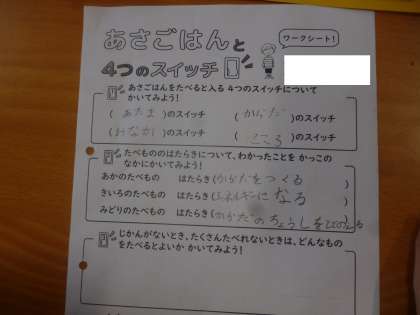 あさごはんと
ワークシート!
4つのスイッチ
あさごはんをたべると入る 4つのスイッチについて
かいてみよう!
( あたま )のスイッチ ( からだ )のスイッチ
( おなか )のスイッチ ( こころ )のスイッチ
たべもののはたらきについて、わかったことを かっこの
なかにかいてみよう!
あかのたべもの はたらき(からだをつくる )
きいろのたべもの はたらき(エネルギーになる )
みどりのたべもの はたらき(からだのちょうしをととのえる
じかんがないとき、たくさんたべれないときは、どんなもの
をたべるとよいか かいてみよう!